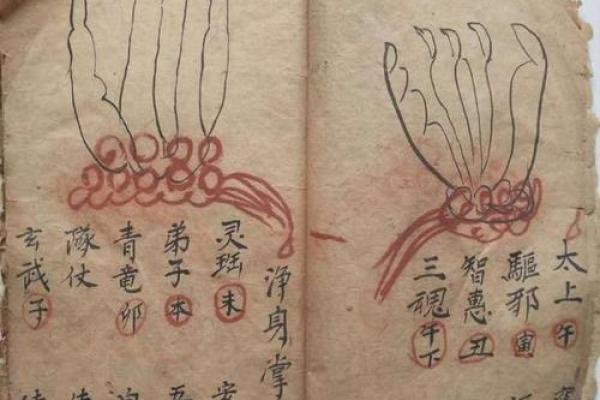 太上午
驅邪寅
智惠丑
三魂午下
浄身掌
灵珤未
弟子本
青竜卯
隊仗
玄武子